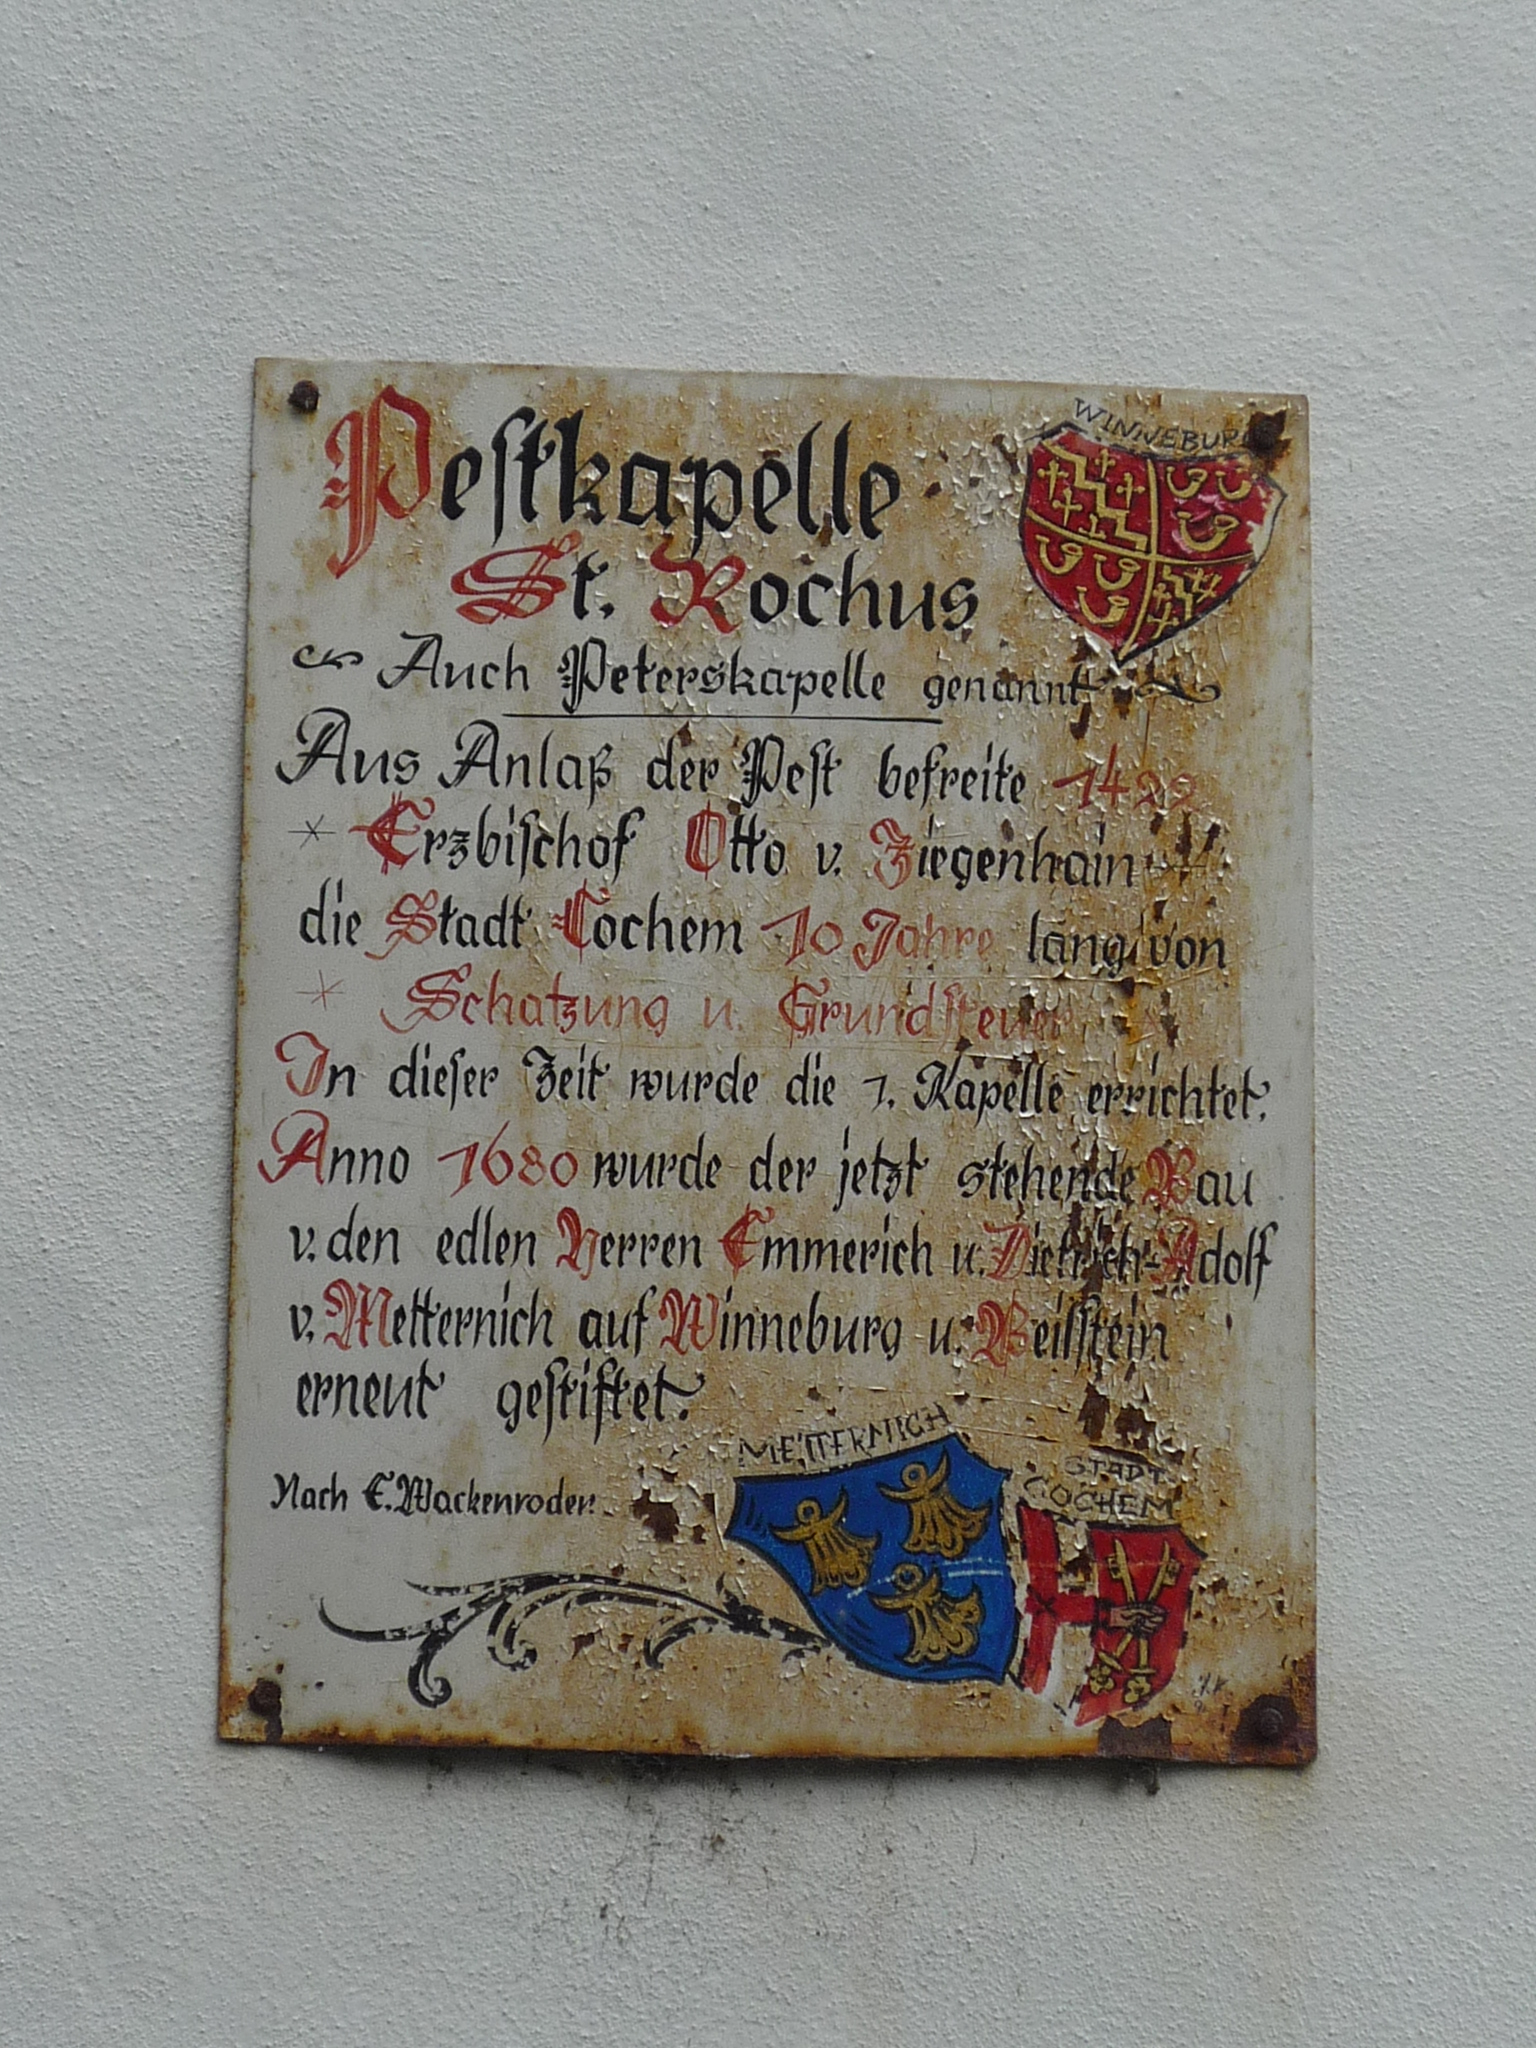 WINNEBURG
Pestkapelle
St. Rochus
Auch Peterskapelle genannt
Aus Anlaß der Pest befreite 1422
* Erzbischof Otto v. Ziegenhain *
die Stadt Cochem 10 Jahre lang von
* Schatzung u. Grundsteuer *
In dieser Zeit wurde die 1. Kapelle errichtet.
Anno 1680 wurde der jetzt stehende Bau
v. den edlen Herren Emmerich u. Dietrich-Adolf
v. Metternich auf Winneburg u. Beilstein
erneut gestiftet.
Nach E. Wackenroder.
METTERNICH
STADT
COCHEM